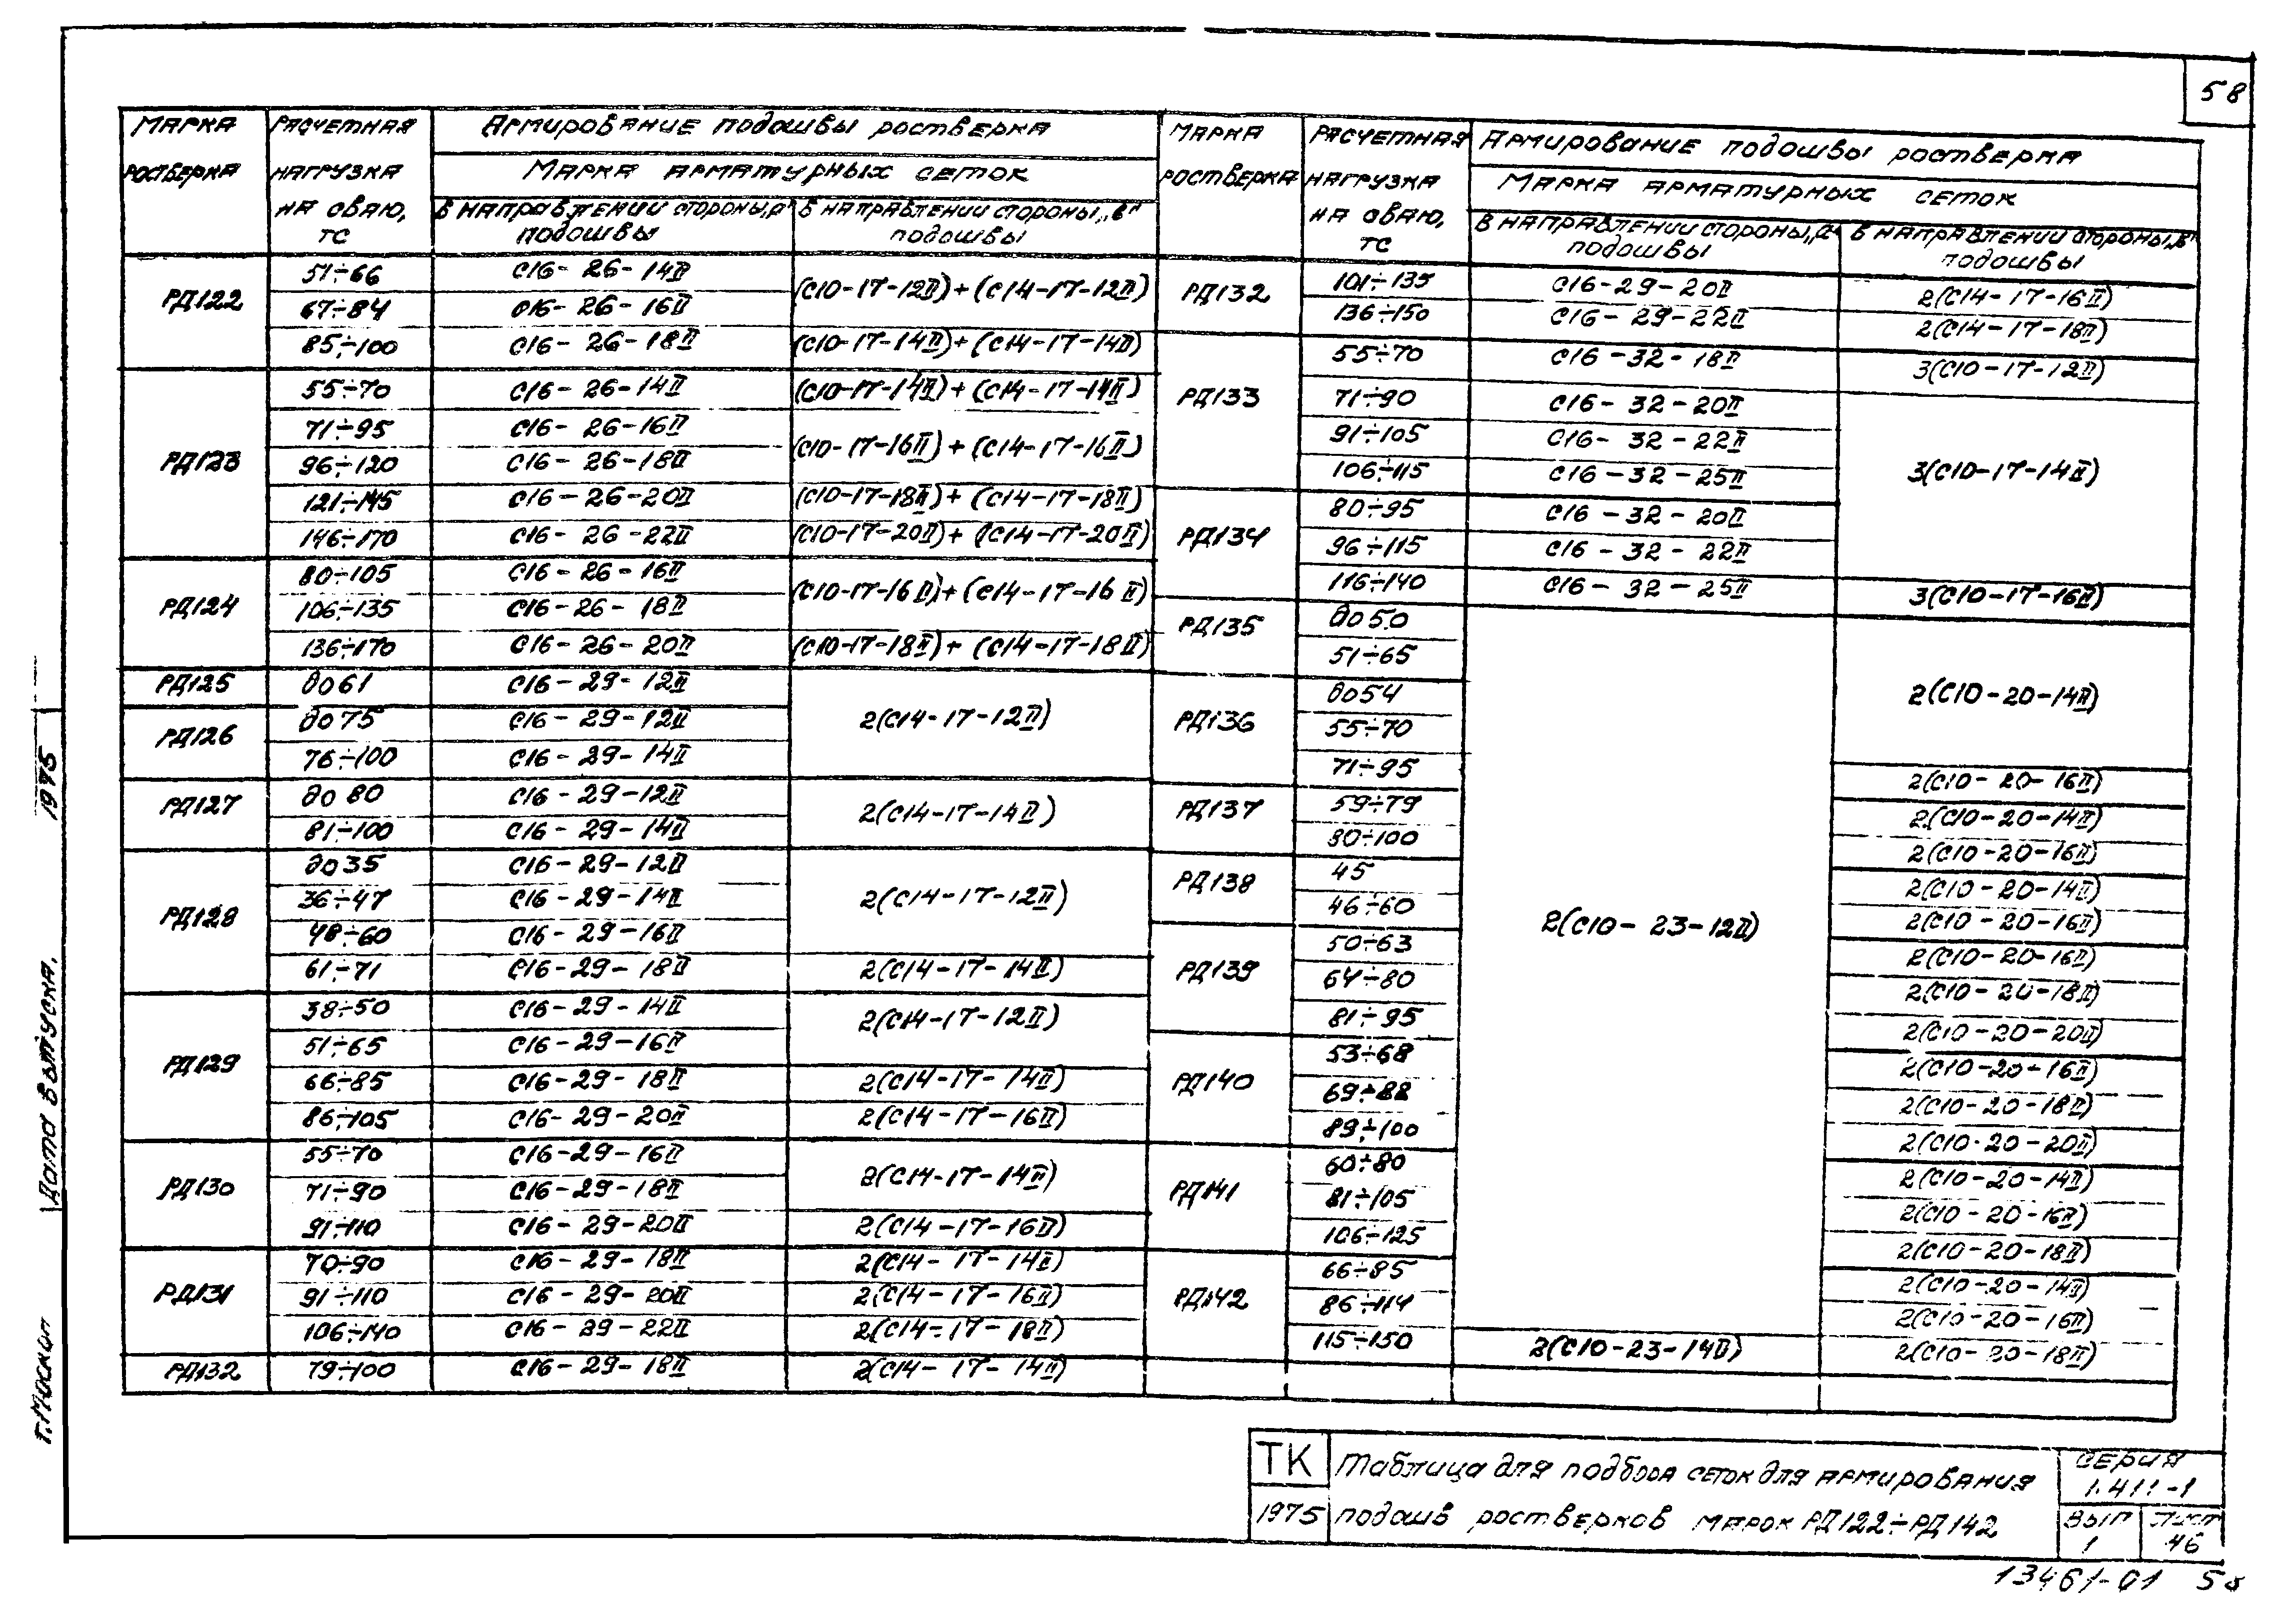 58
Марка ростверка | Расчетная нагрузка на сваю, тс | Армирование подошвы ростверка
Марка арматурных сеток
в направлении стороны „а" подошвы | в направлении стороны „в" подошвы
РД122 | 51÷66 | С16-26-14II | (С10-17-12II)+(С14-17-12II)
67÷84 | С16-26-16II
85÷100 | С16-26-18II | (С10-17-14II)+(С14-17-14II)
РД123 | 55÷70 | С16-26-14II | (С10-17-14II)+(С14-17-14II)
71÷95 | С16-26-16II | (С10-17-16II)+(С14-17-16II)
96÷120 | С16-26-18II
121÷145 | С16-26-20II | (С10-17-18II)+(С14-17-18II)
146÷170 | С16-26-22II | (С10-17-20II)+(С14-17-20II)
РД124 | 80÷105 | С16-26-16II | (С10-17-16II)+(С14-17-16II)
106÷135 | С16-26-18II
136÷170 | С16-26-20II | (С10-17-18II)+(С14-17-18II)
РД125 | до 61 | С16-29-12II | 2(С14-17-12II)
РД126 | до 75 | С16-29-12II
76÷100 | С16-29-14II
РД127 | до 80 | С16-29-12II | 2(С14-17-14II)
81÷100 | С16-29-14II
РД128 | до 35 | С16-29-12II | 2(С14-17-12II)
36÷47 | С16-29-14II
48÷60 | С16-29-16II
61÷71 | С16-29-18II | 2(С14-17-14II)
РД129 | 38÷50 | С16-29-14II | 2(С14-17-12II)
51÷65 | С16-29-16II
66÷85 | С16-29-18II | 2(С14-17-14II)
86÷105 | С16-29-20II | 2(С14-17-16II)
РД130 | 55÷70 | С16-29-16II | 2(С14-17-14II)
71÷90 | С16-29-18II
91÷110 | С16-29-20II | 2(С14-17-16II)
РД131 | 70÷90 | С16-29-18II | 2(С14-17-14II)
91÷110 | С16-29-20II | 2(С14-17-16II)
106÷140 | С16-29-22II | 2(С14-17-18II)
РД132 | 79÷100 | С16-29-18II | 2(С14-17-14II)
Марка ростверка | Расчетная нагрузка на сваю, тс | Армирование подошвы ростверка
Марка арматурных сеток
в направлении стороны „а" подошвы | в направлении стороны „в" подошвы
РД132 | 101÷135 | С16-29-20II | 2(С14-17-16II)
136÷150 | С16-29-22II | 2(С14-17-18II)
РД133 | 55÷70 | С16-32-18II | 3(С10-17-12II)
71÷90 | С16-32-20II | 3(С10-17-14II)
91÷105 | С16-32-22II
106÷115 | С16-32-25II
РД134 | 80÷95 | С16-32-20II
96÷115 | С16-32-22II
116÷140 | С16-32-25II | 3(С10-17-16II)
РД135 | до 50 | 2(С10-23-12II) | 2(С10-20-14II)
51÷65
РД136 | до 54
55÷70
71÷95 | 2(С10-20-16II)
РД137 | 59÷79 | 2(С10-20-14II)
80÷100 | 2(С10-20-16II)
РД138 | 45 | 2(С10-20-14II)
46÷60 | 2(С10-20-16II)
РД139 | 50÷63 | 2(С10-20-16II)
64÷80 | 2(С10-20-18II)
81÷95 | 2(С10-20-20II)
РД140 | 53÷68 | 2(С10-20-16II)
69÷88 | 2(С10-20-18II)
89÷100 | 2(С10-20-20II)
РД141 | 60÷80 | 2(С10-20-14II)
81÷105 | 2(С10-20-16II)
106÷125 | 2(С10-20-18II)
РД142 | 66÷85 | 2(С10-20-14II)
86÷114 | 2(С10-20-16II)
115÷150 | 2(С10-23-14II) | 2(С10-20-18II)
г. Москва Дата выпуска. 1975
ТК
1975
Таблица для подбора сеток для армирования
подошв ростверков марок РД122÷РД142
Серия
1.411-1
Вып 1
Лист 46
13461-01 58